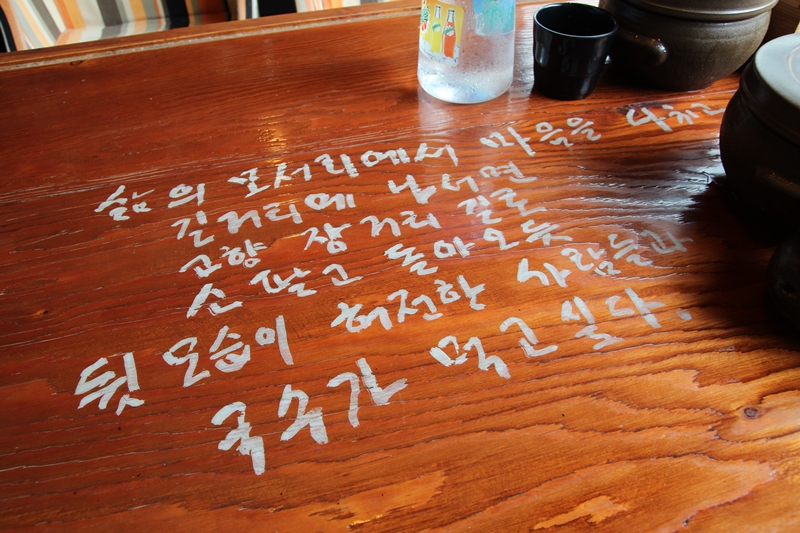 삶의 모서리에서 마음을 다치고
길거리에 나서면
고향 장거리 길로
소 팔고 돌아오듯
뒷모습이 허전한 사람들과
국수가 먹고 싶다.